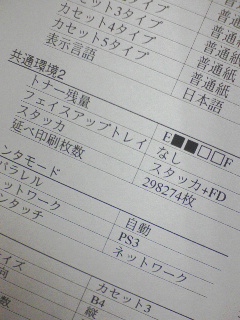 カセット3タイプ 普通紙
カセット4タイプ 普通紙
カセット5タイプ 普通紙
表示言語 日本語
共通環境2
トナー残量 E■■□□F
フェイスアップトレイ なし
スタッカ スタッカ+FD
延べ印刷枚数 298274枚
ンタモード 自動
パラレル PS3
ットワーク ネットワーク
ンタッチ
イズ カセット3
B4
数 縦